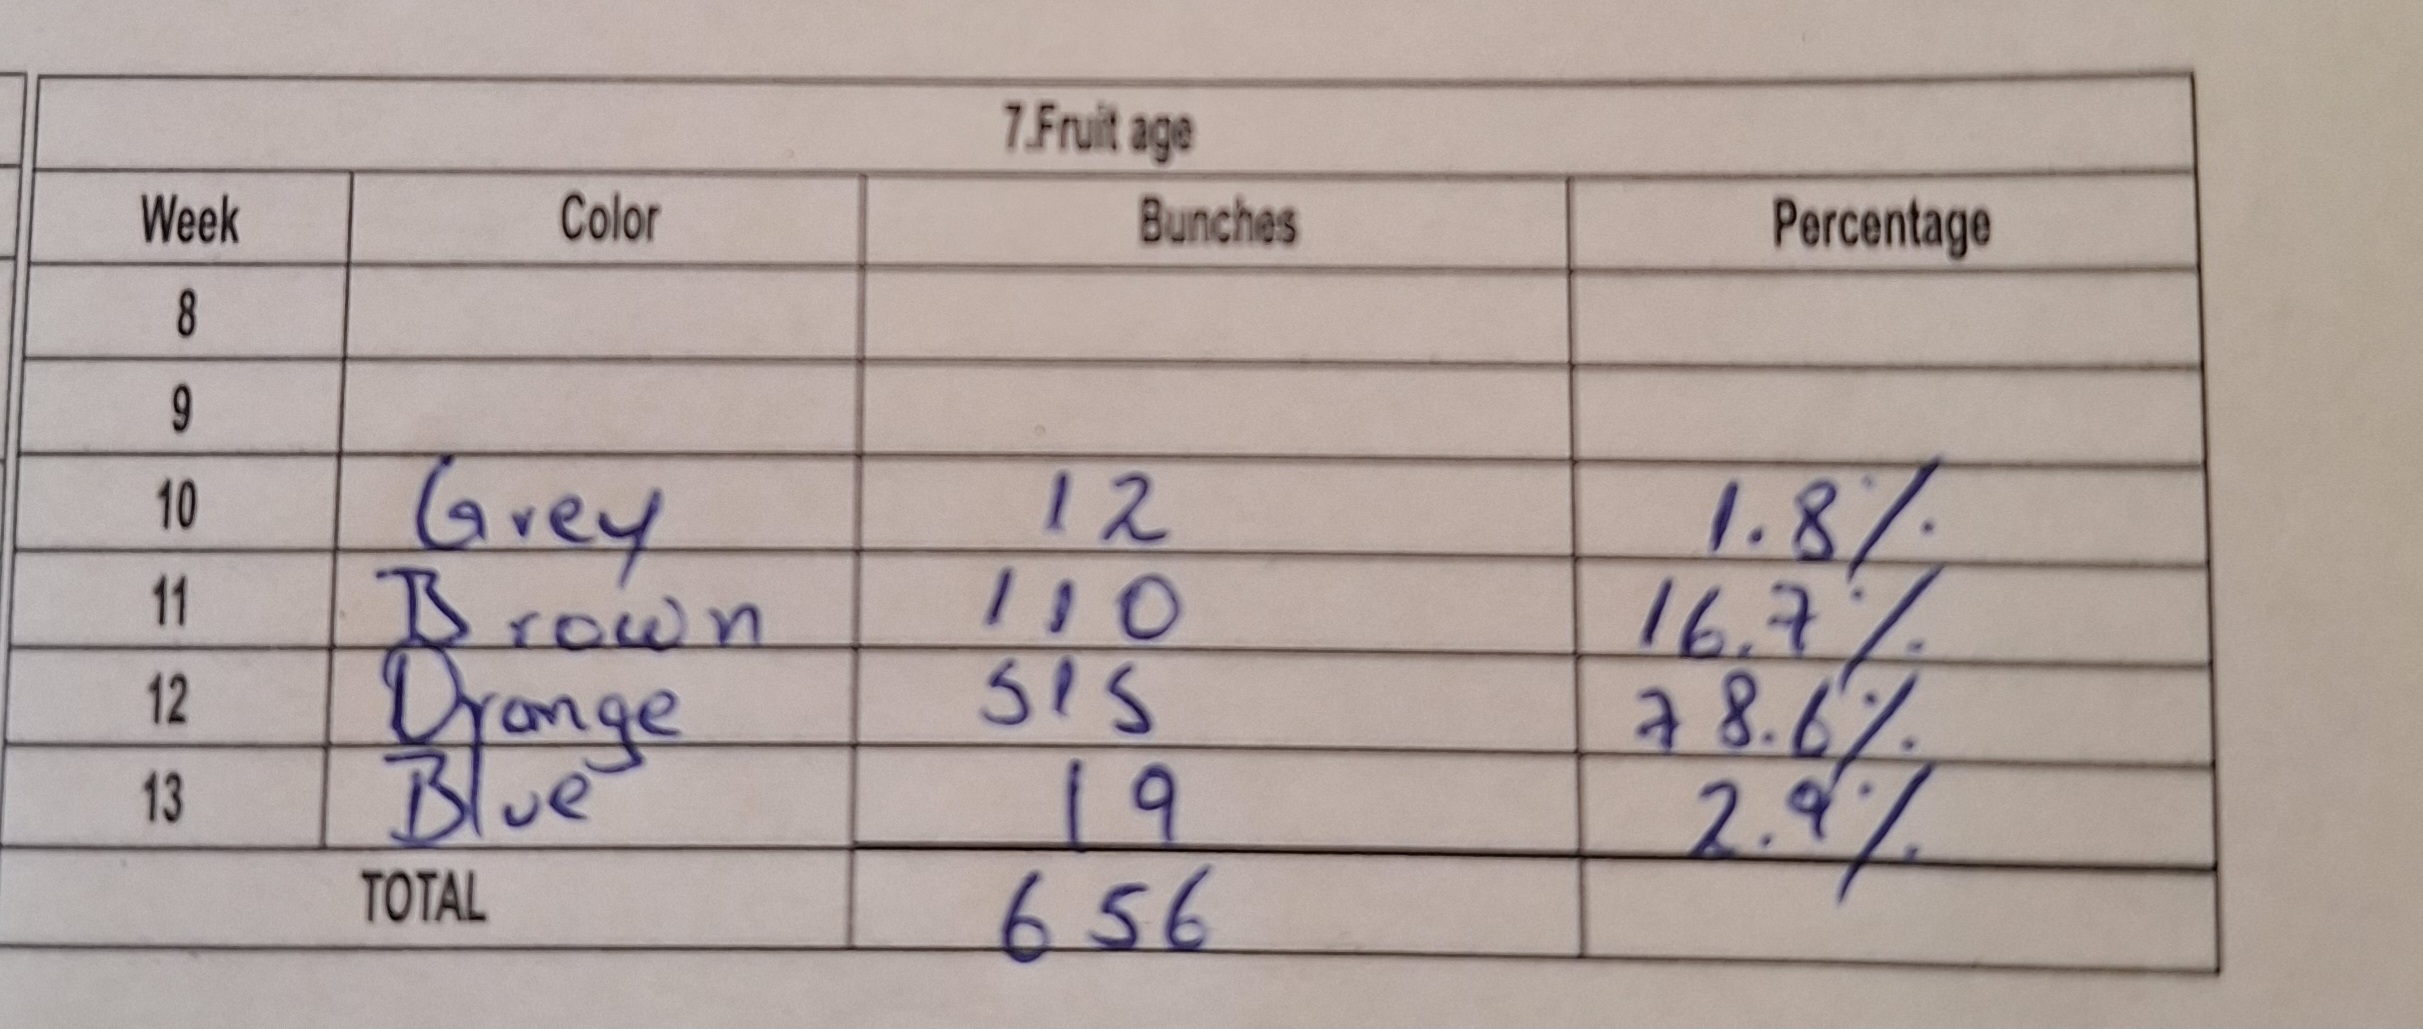 7.Fruit age
Week Color Bunches Percentage
8
9
10 Grey 12 1.8%
11 Brown 110 16.7%
12 Orange 515 78.6%
13 Blue 19 2.9%
TOTAL 656